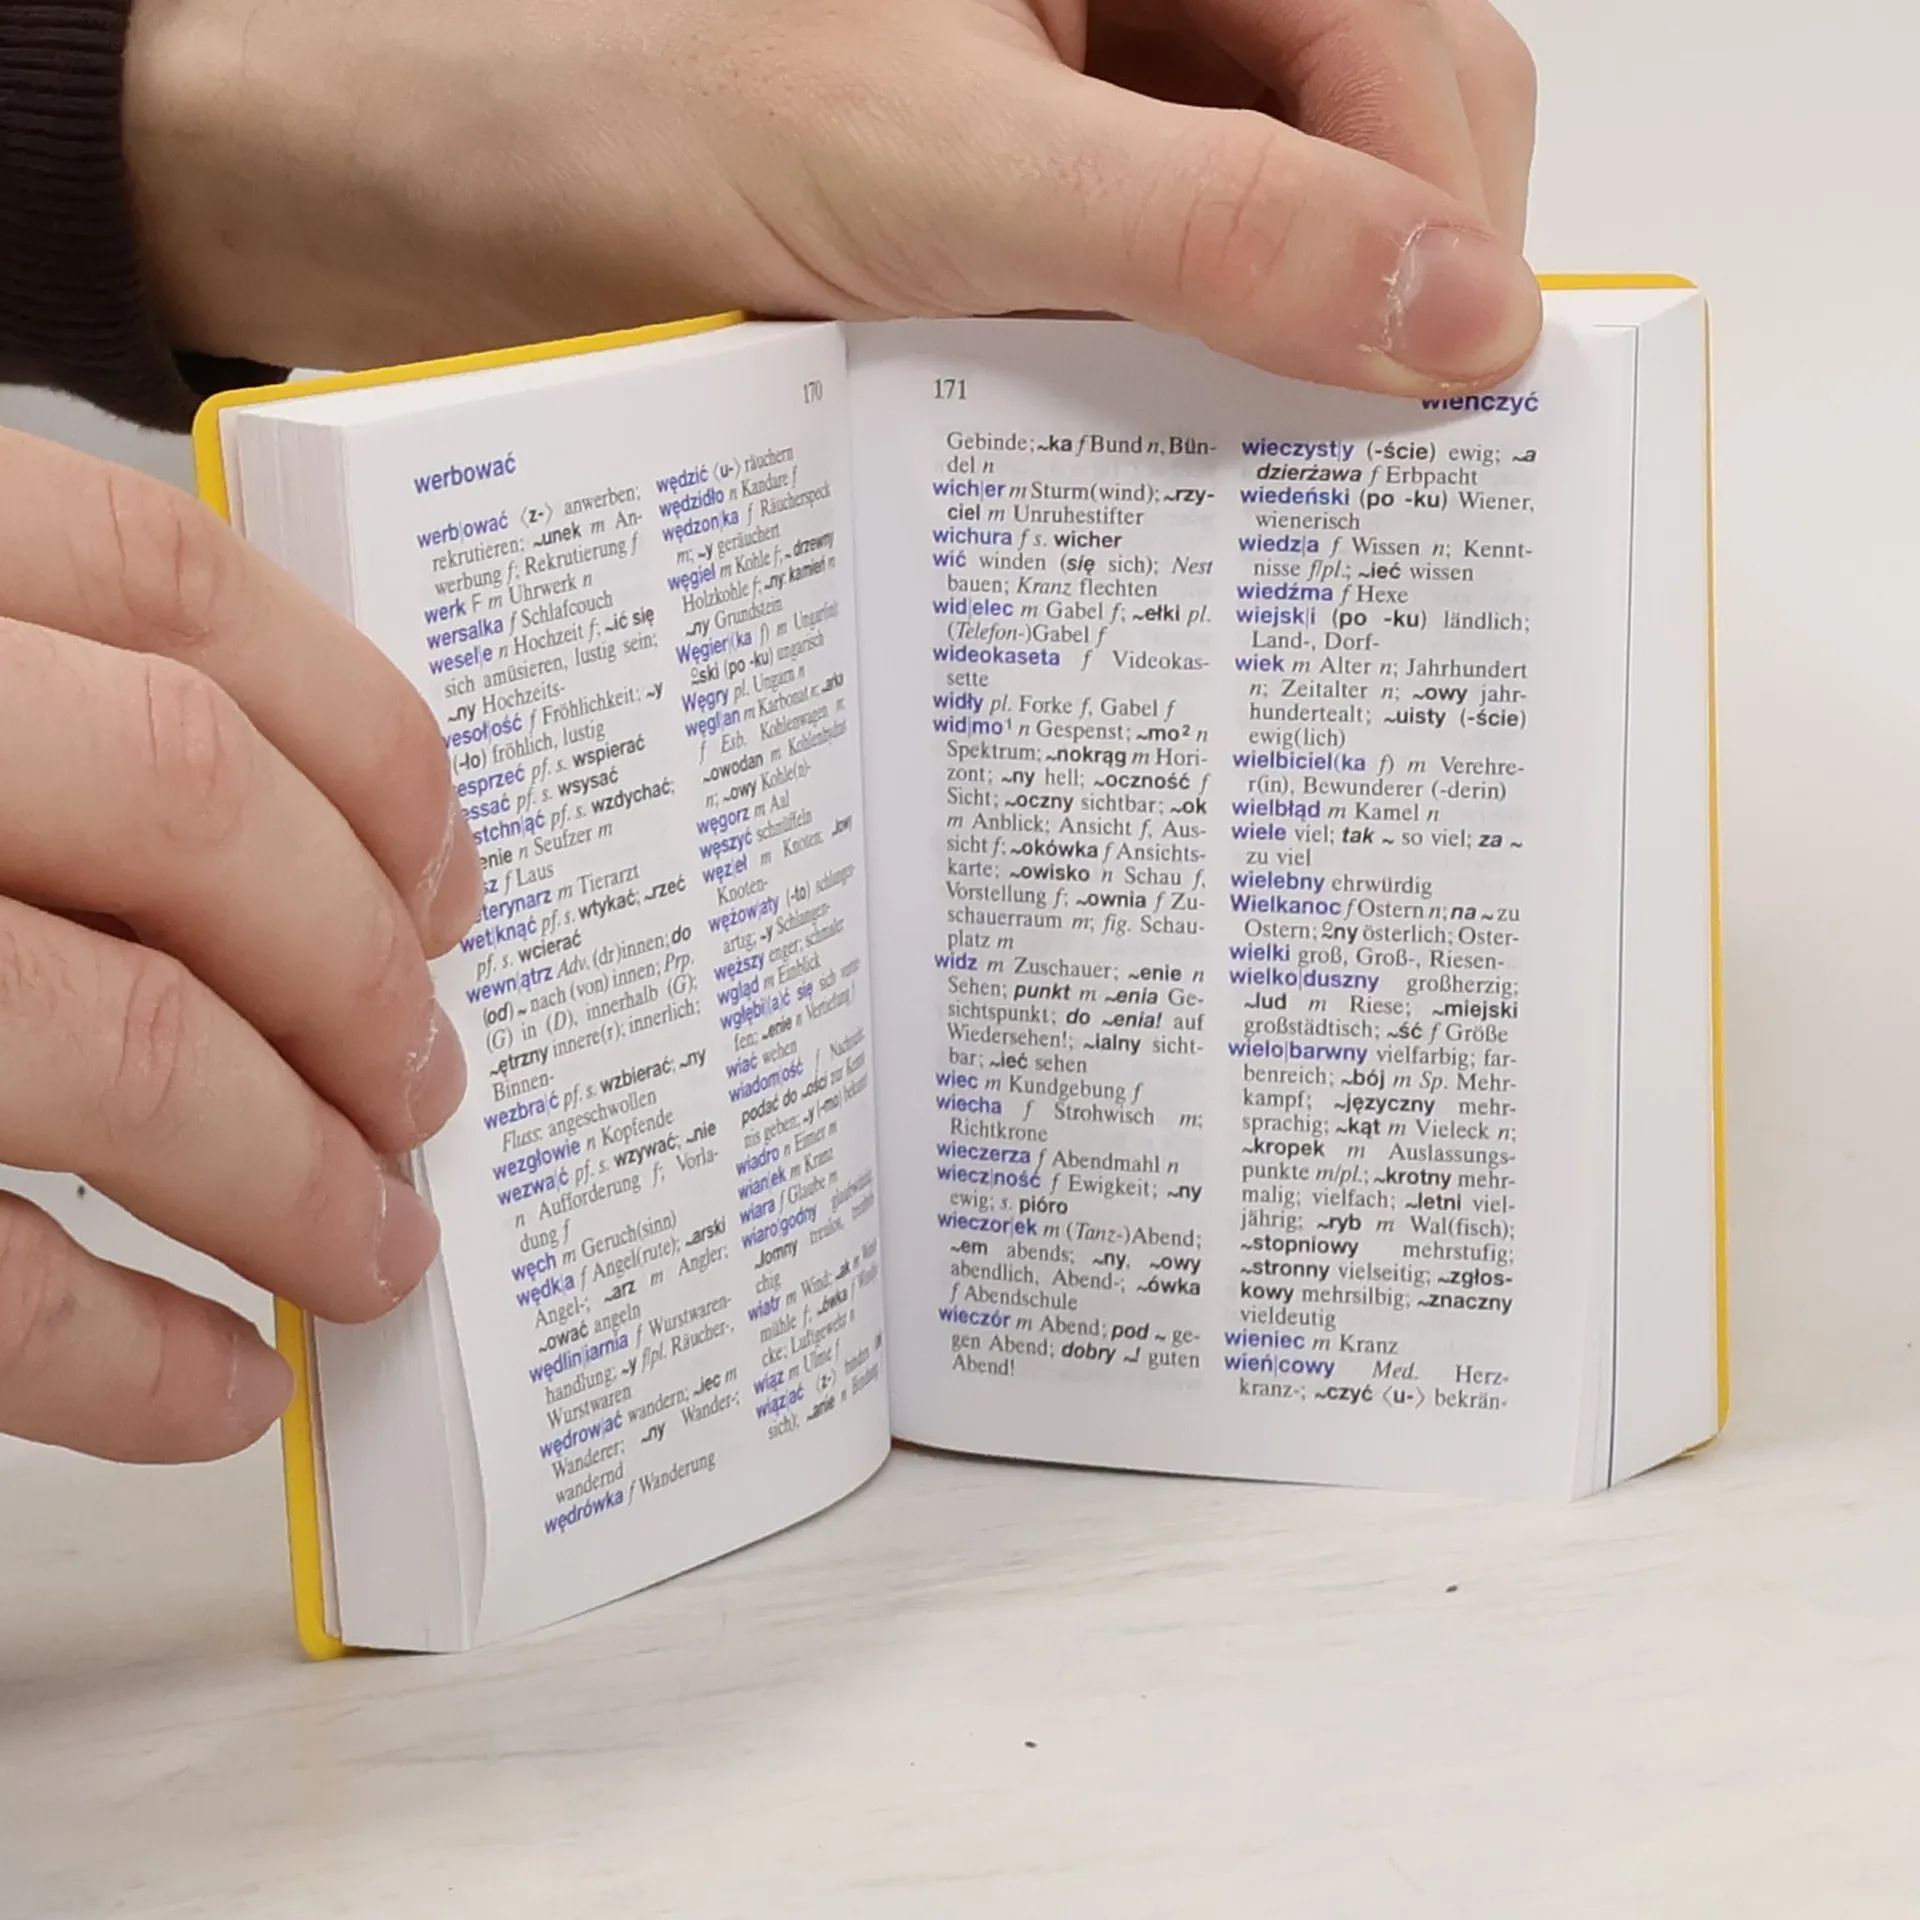 170
werbować
werb|ować ⟨z-⟩ anwerben;
rekrutieren; ~unek m An-
werbung f; Rekrutierung f
werk F m Uhrwerk n
wersalka f Schlafcouch
wesel|e n Hochzeit f; ~ić się
sich amüsieren, lustig sein;
~ny Hochzeits-
wesoł|ość f Fröhlichkeit; ~y
(-ło) fröhlich, lustig
esprzeć pf. s. wspierać
essać pf. s. wsysać
stchn|ąć pf. s. wzdychać;
enie n Seufzer m
sz f Laus
eterynarz m Tierarzt
wet|knąć pf. s. wtykać; ~rzeć
pf. s. wcierać
wewn|ątrz Adv. (dr)innen; do
(od) ~ nach (von) innen; Prp.
(G) in (D), innerhalb (G);
~ętrzny innere(r); innerlich;
Binnen-
wezbra|ć pf. s. wzbierać; ~ny
Fluss: angeschwollen
wezgłowie n Kopfende
wezwa|ć pf. s. wzywać; ~nie
n Aufforderung f; Vorla-
dung f
węch m Geruch(sinn)
wędk|a f Angel(rute); ~arski
Angel-; ~arz m Angler;
~ować angeln
wędlin|iarnia f Wurstwaren-
handlung; ~y f/pl. Räucher-,
Wurstwaren
wędrow|ać wandern; ~iec m
Wanderer; ~ny Wander-;
wandernd
wędrówka f Wanderung
wędzić ⟨u-⟩ räuchern
wędzidło n Kandare f
wędzon|ka f Räucherspeck
m; ~y geräuchert
węgiel m Kohle f; ~ drzewny
Holzkohle f; ~ny: kamień n
~ny Grundstein
Węgier|(ka f) m Ungar(in)
~ski (po -ku) ungarisch
Węgry pl. Ungarn n
węgl|an m Karbonat n; ~arka
f Esb. Kohlenwagen m
~owodan m Kohlenhydrat
n; ~owy Kohle(n)-
węgorz m Aal
węszyć schnüffeln
węz|eł m Knoten, ~łowy
Knoten-
wężow|aty (-to) schlangen-
artig; ~y Schlangen-
węższy enger; schmaler
wgląd m Einblick
wgłębi|(a)ć się sich
fen; ~enie n Vertiefung f
wiać wehen
wiadom|ość f Nachricht
podać do ~ości zur Kennt-
nis geben; ~y (-mo) bekannt
wiadro n Eimer m
wian|ek m Kranz
wiara f Glaube m
wiaro|godny glaubwürdig
~łomny treulos,
chig
wiatr m Wind; ~ak m Wind-
mühle f; ~ówka f Windja-
cke; Luftgewehr n
wiąz m Ulme f
wiąz|ać ⟨z-⟩ binden
sich); ~anie n Bindung
171
wieńczyć
Gebinde; ~ka f Bund n, Bün-
del n
wich|er m Sturm(wind); ~rzy-
ciel m Unruhestifter
wichura f s. wicher
wić winden (się sich); Nest
bauen; Kranz flechten
wid|elec m Gabel f; ~ełki pl.
(Telefon-)Gabel f
wideokaseta f Videokas-
sette
widły pl. Forke f, Gabel f
wid|mo¹ n Gespenst; ~mo² n
Spektrum; ~nokrąg m Hori-
zont; ~ny hell; ~oczność f
Sicht; ~oczny sichtbar; ~ok
m Anblick; Ansicht f, Aus-
sicht f; ~okówka f Ansichts-
karte; ~owisko n Schau f,
Vorstellung f; ~ownia f Zu-
schauerraum m; fig. Schau-
platz m
widz m Zuschauer; ~enie n
Sehen; punkt m ~enia Ge-
sichtspunkt; do ~enia! auf
Wiedersehen!; ~ialny sicht-
bar; ~ieć sehen
wiec m Kundgebung f
wiecha f Strohwisch m;
Richtkrone
wieczerza f Abendmahl n
wiecz|ność f Ewigkeit; ~ny
ewig; s. pióro
wieczor|ek m (Tanz-)Abend;
~em abends; ~ny, ~owy
abendlich, Abend-; ~ówka
f Abendschule
wieczór m Abend; pod ~ ge-
gen Abend; dobry ~! guten
Abend!
wieczyst|y (-ście) ewig; ~a
dzierżawa f Erbpacht
wiedeński (po -ku) Wiener,
wienerisch
wiedz|a f Wissen n; Kennt-
nisse f/pl.; ~ieć wissen
wiedźma f Hexe
wiejsk|i (po -ku) ländlich;
Land-, Dorf-
wiek m Alter n; Jahrhundert
n; Zeitalter n; ~owy jahr-
hundertealt; ~uisty (-ście)
ewig(lich)
wielbiciel(ka f) m Verehre-
r(in), Bewunderer (-derin)
wielbłąd m Kamel n
wiele viel; tak ~ so viel; za ~
zu viel
wielebny ehrwürdig
Wielkanoc f Ostern n; na ~ zu
Ostern; ~ny österlich; Oster-
wielki groß, Groß-, Riesen-
wielko|duszny großherzig;
~lud m Riese; ~miejski
großstädtisch; ~ść f Größe
wielo|barwny vielfarbig; far-
benreich; ~bój m Sp. Mehr-
kampf; ~języczny mehr-
sprachig; ~kąt m Vieleck n;
~kropek m Auslassungs-
punkte m/pl.; ~krotny mehr-
malig; vielfach; ~letni viel-
jährig; ~ryb m Wal(fisch);
~stopniowy mehrstufig;
~stronny vielseitig; ~zgłos-
kowy mehrsilbig; ~znaczny
vieldeutig
wieniec m Kranz
wień|cowy Med. Herz-
kranz-; ~czyć ⟨u-⟩ bekrän-